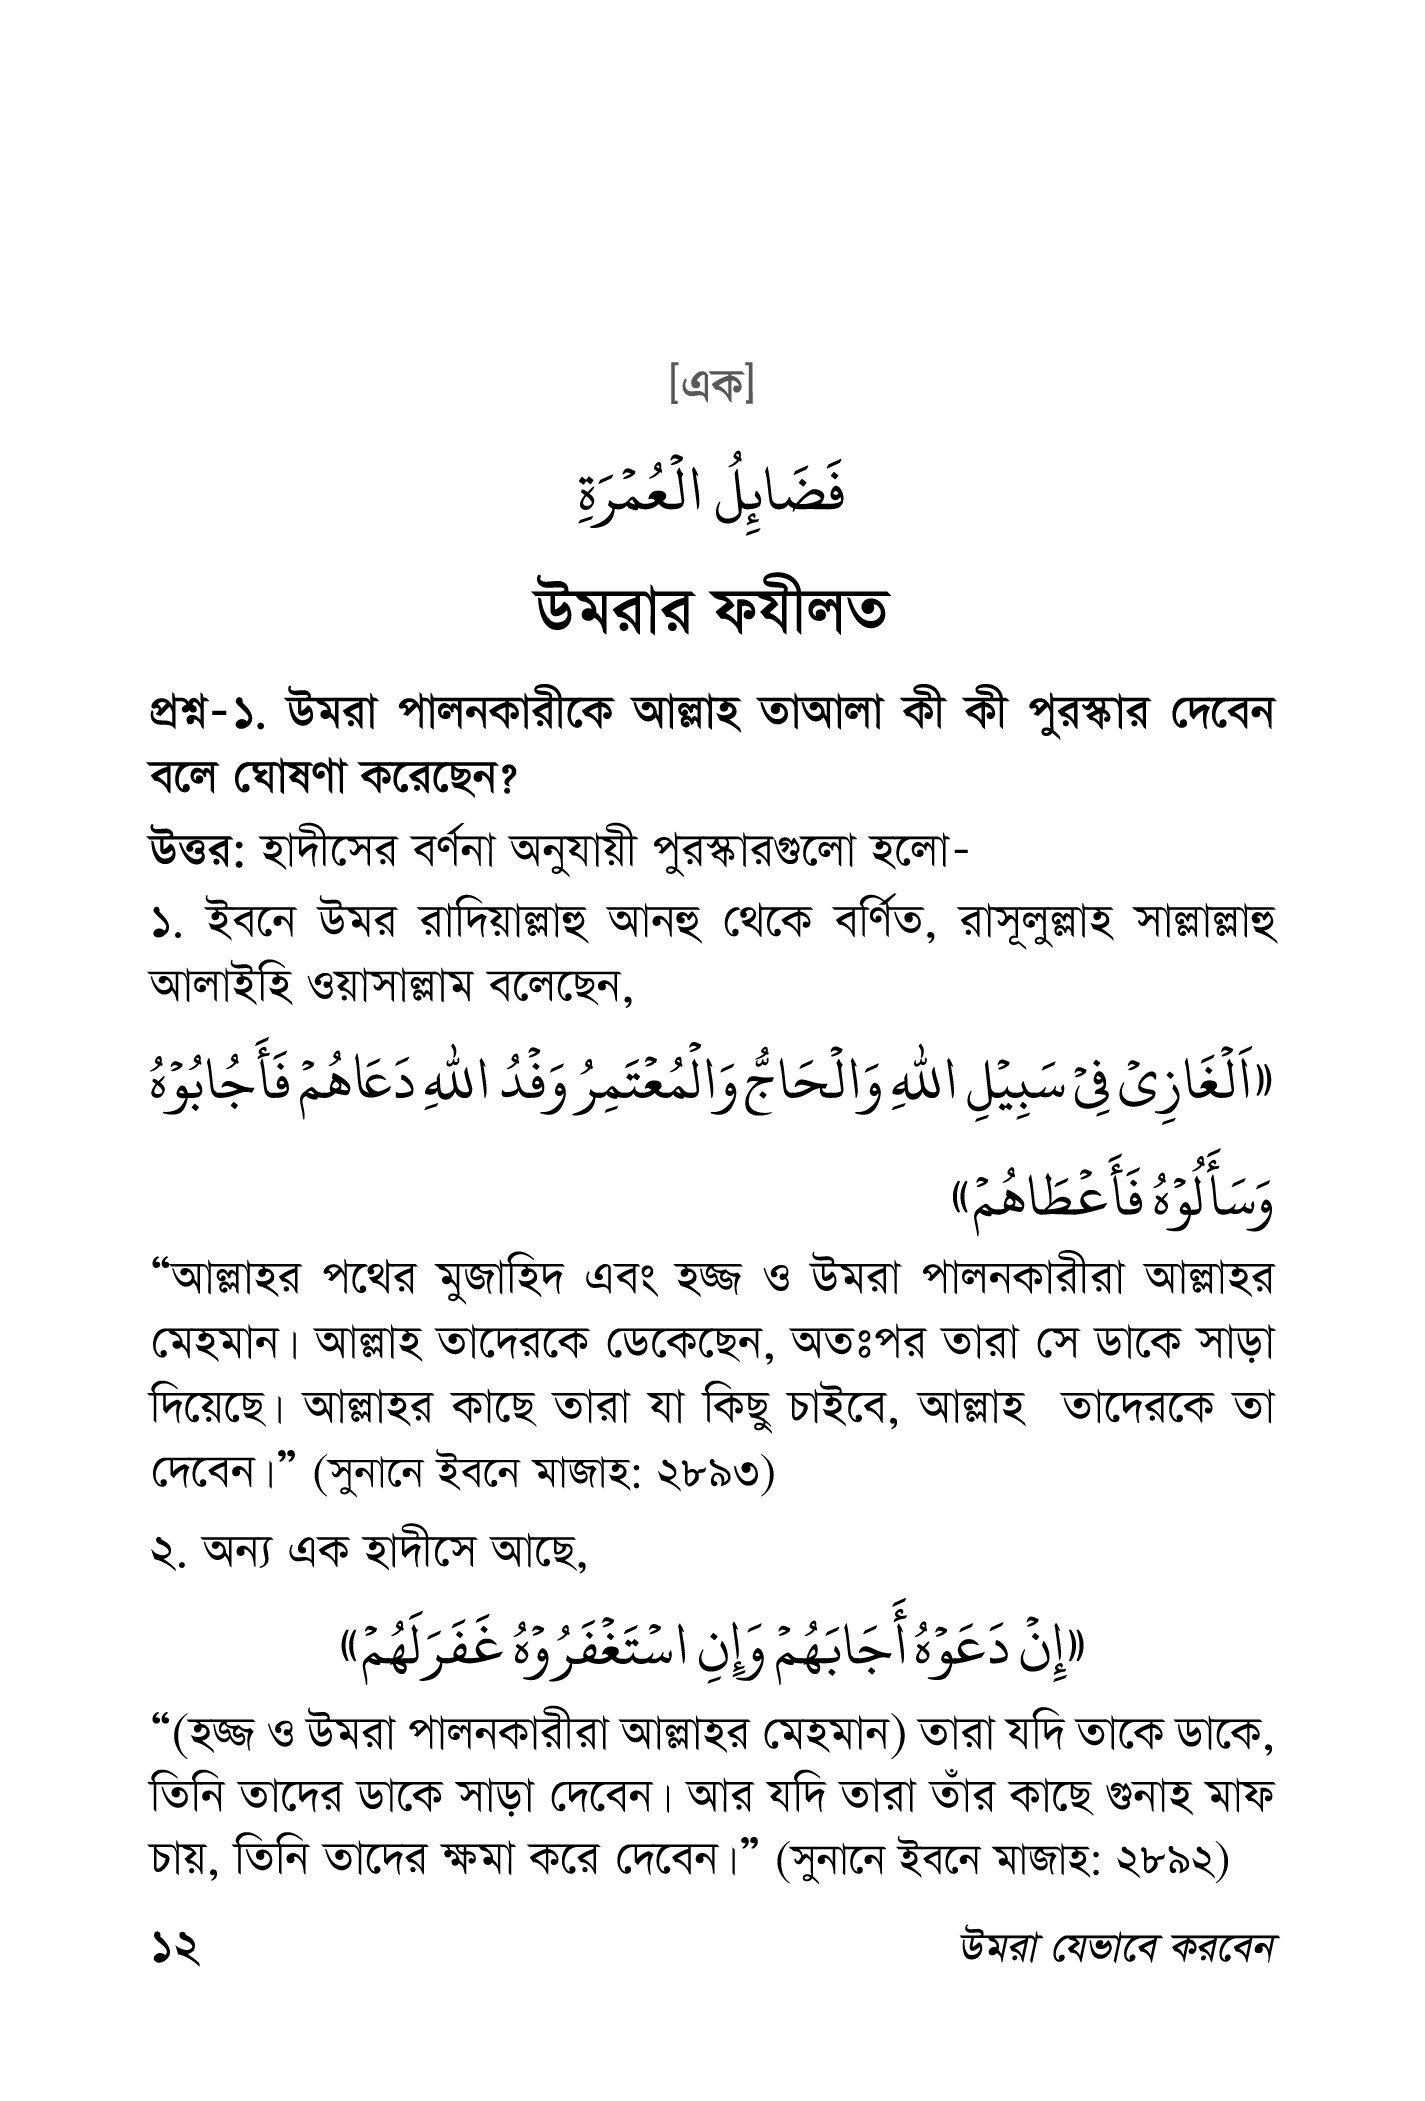 [এক]
فَضَائِلُ الْعُمْرَةِ
উমরার ফযীলত
প্রশ্ন-১. উমরা পালনকারীকে আল্লাহ তাআলা কী কী পুরস্কার দেবেন
বলে ঘোষণা করেছেন?
উত্তর: হাদীসের বর্ণনা অনুযায়ী পুরস্কারগুলো হলো-
১. ইবনে উমর রাদিয়াল্লাহু আনহু থেকে বর্ণিত, রাসূলুল্লাহ সাল্লাল্লাহু
আলাইহি ওয়াসাল্লাম বলেছেন,
«اَلْغَازِىْ فِىْ سَبِيْلِ اللهِ وَالْحَاجُّ وَالْمُعْتَمِرُ وَفْدُ اللهِ دَعَاهُمْ فَأَجُابُوْهُ
وَسَأَلُوْهُ فَأَعْطَاهُمْ»
“আল্লাহর পথের মুজাহিদ এবং হজ্জ ও উমরা পালনকারীরা আল্লাহর
মেহমান। আল্লাহ তাদেরকে ডেকেছেন, অতঃপর তারা সে ডাকে সাড়া
দিয়েছে। আল্লাহর কাছে তারা যা কিছু চাইবে, আল্লাহ তাদেরকে তা
দেবেন।” (সুনানে ইবনে মাজাহ: ২৮৯৩)
২. অন্য এক হাদীসে আছে,
«إِنْ دَعَوْهُ أَجَابَهُمْ وَإِنِ اسْتَغْفَرُوْهُ غَفَرَلَهُمْ»
“(হজ্জ ও উমরা পালনকারীরা আল্লাহর মেহমান) তারা যদি তাকে ডাকে,
তিনি তাদের ডাকে সাড়া দেবেন। আর যদি তারা তাঁর কাছে গুনাহ মাফ
চায়, তিনি তাদের ক্ষমা করে দেবেন।” (সুনানে ইবনে মাজাহ: ২৮৯২)
১২ উমরা যেভাবে করবেন